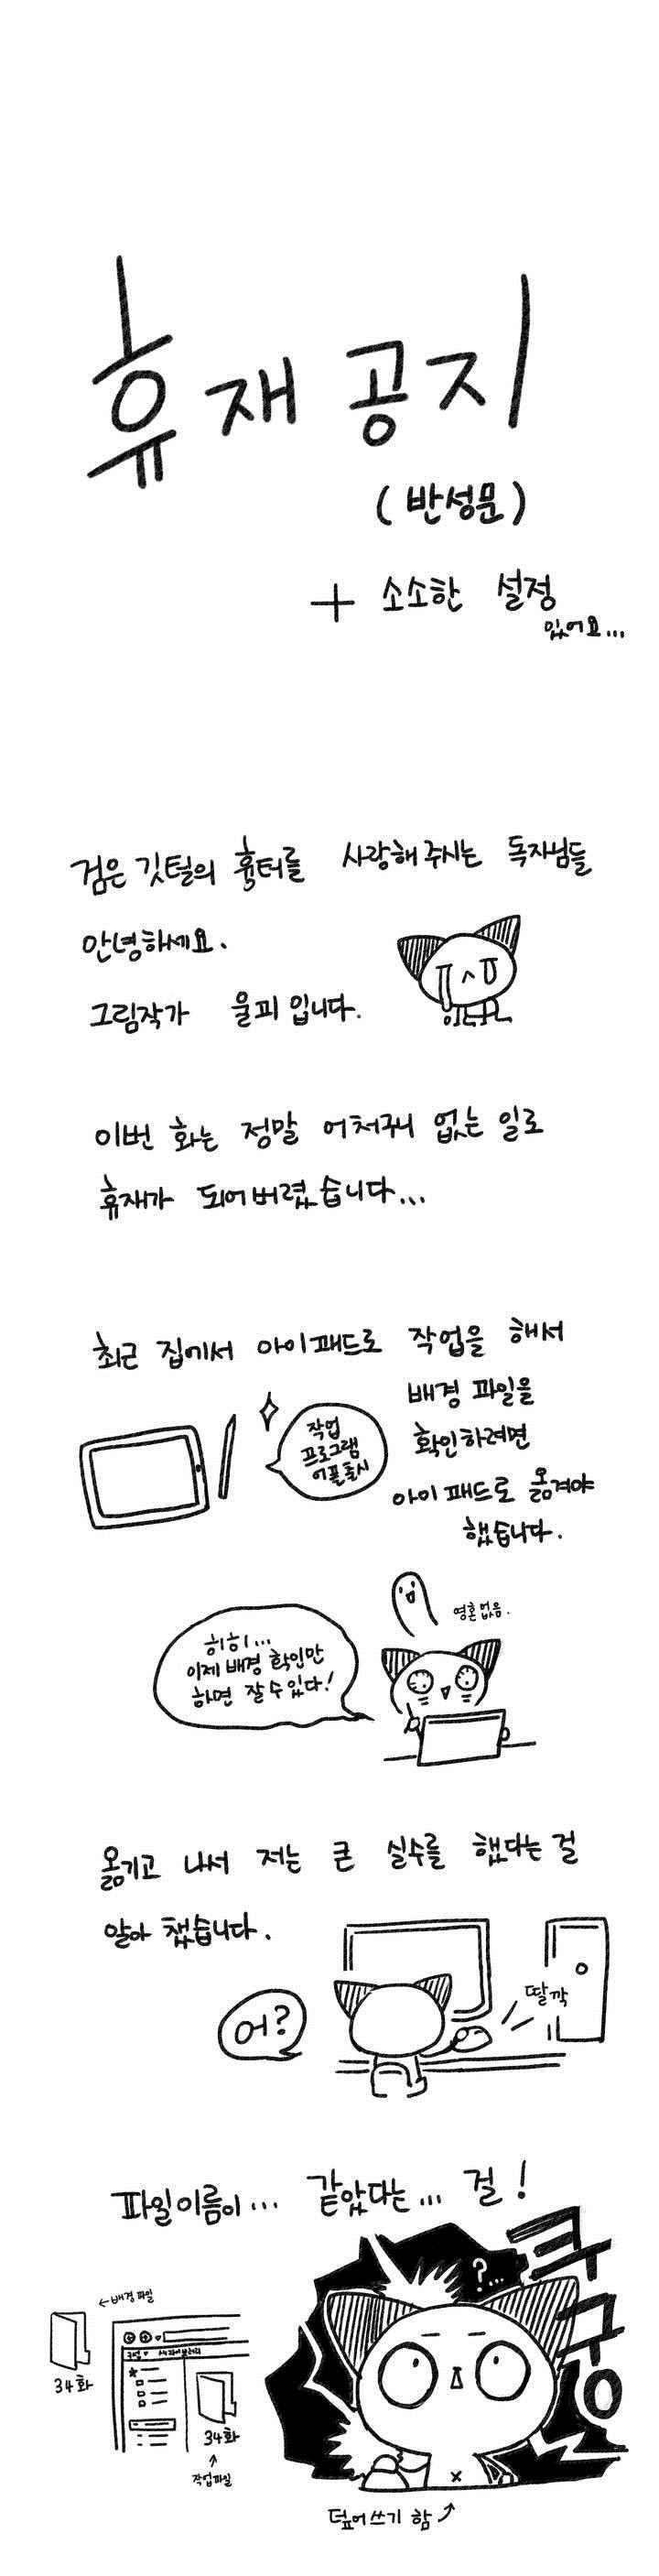 휴재 공지
(반성문)
+ 소소한 설정
있어요...
검은 깃털의 흉터를 사랑해 주시는 독자님들
안녕하세요.
그림작가 울피 입니다.
이번 화는 정말 어처구니 없는 일로
휴재가 되어버렸습니다...
최근 집에서 아이패드로 작업을 해서
배경 파일을
확인하려면
아이패드로 옮겨야
했습니다.
작업
프로그램
어플출시
영혼없음.
히히...
이제 배경 확인만
하면 잘 수 있다!
옮기고 나서 저는 큰 실수를 했다는 걸
알아 챘습니다.
어?
딸깍
파일이름이... 같았다는... 걸!
쿠
구
?...
←배경파일
34화
34화
↑
작업파일
덮어쓰기 함